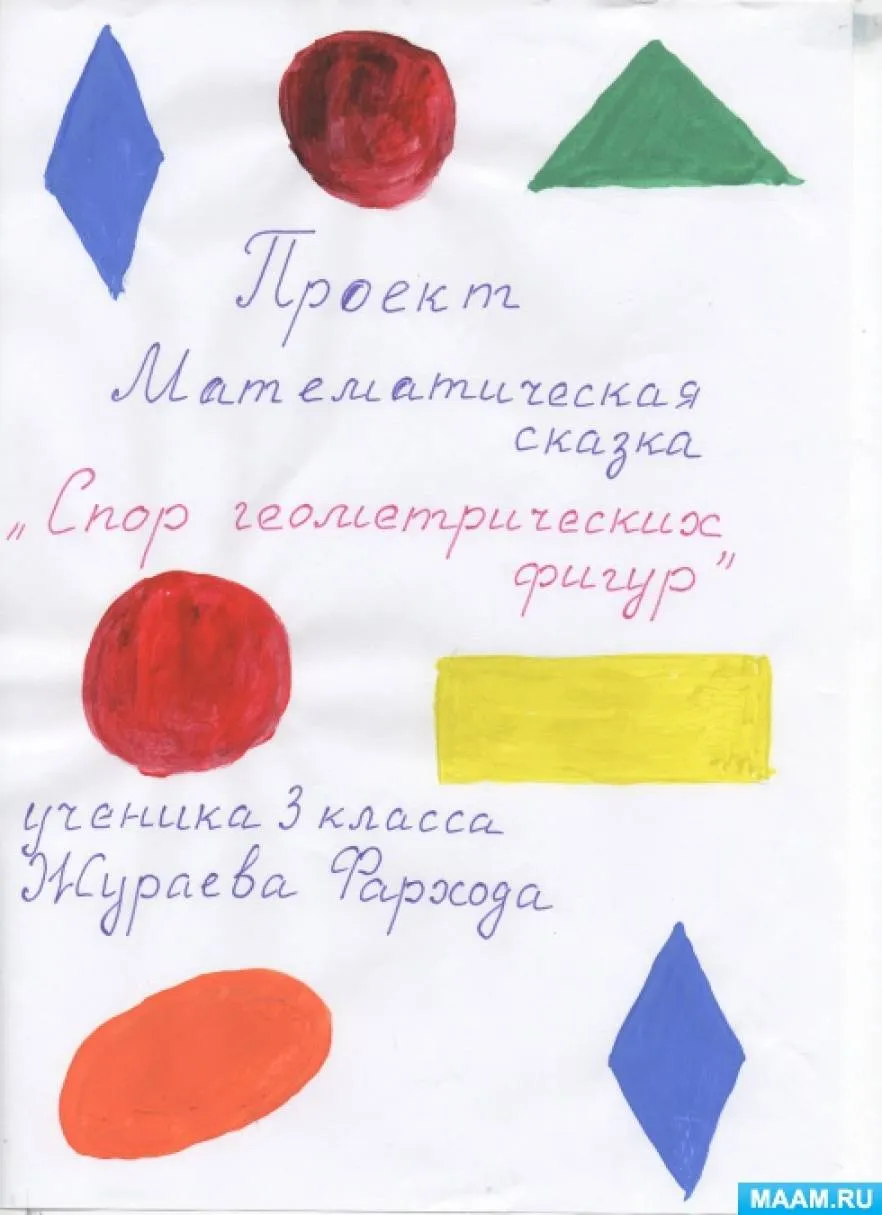 Проект
Математическая
сказка
„Спор геометрических
фигур”
ученика 3 класса
Жураева Фархода
MAAM.RU